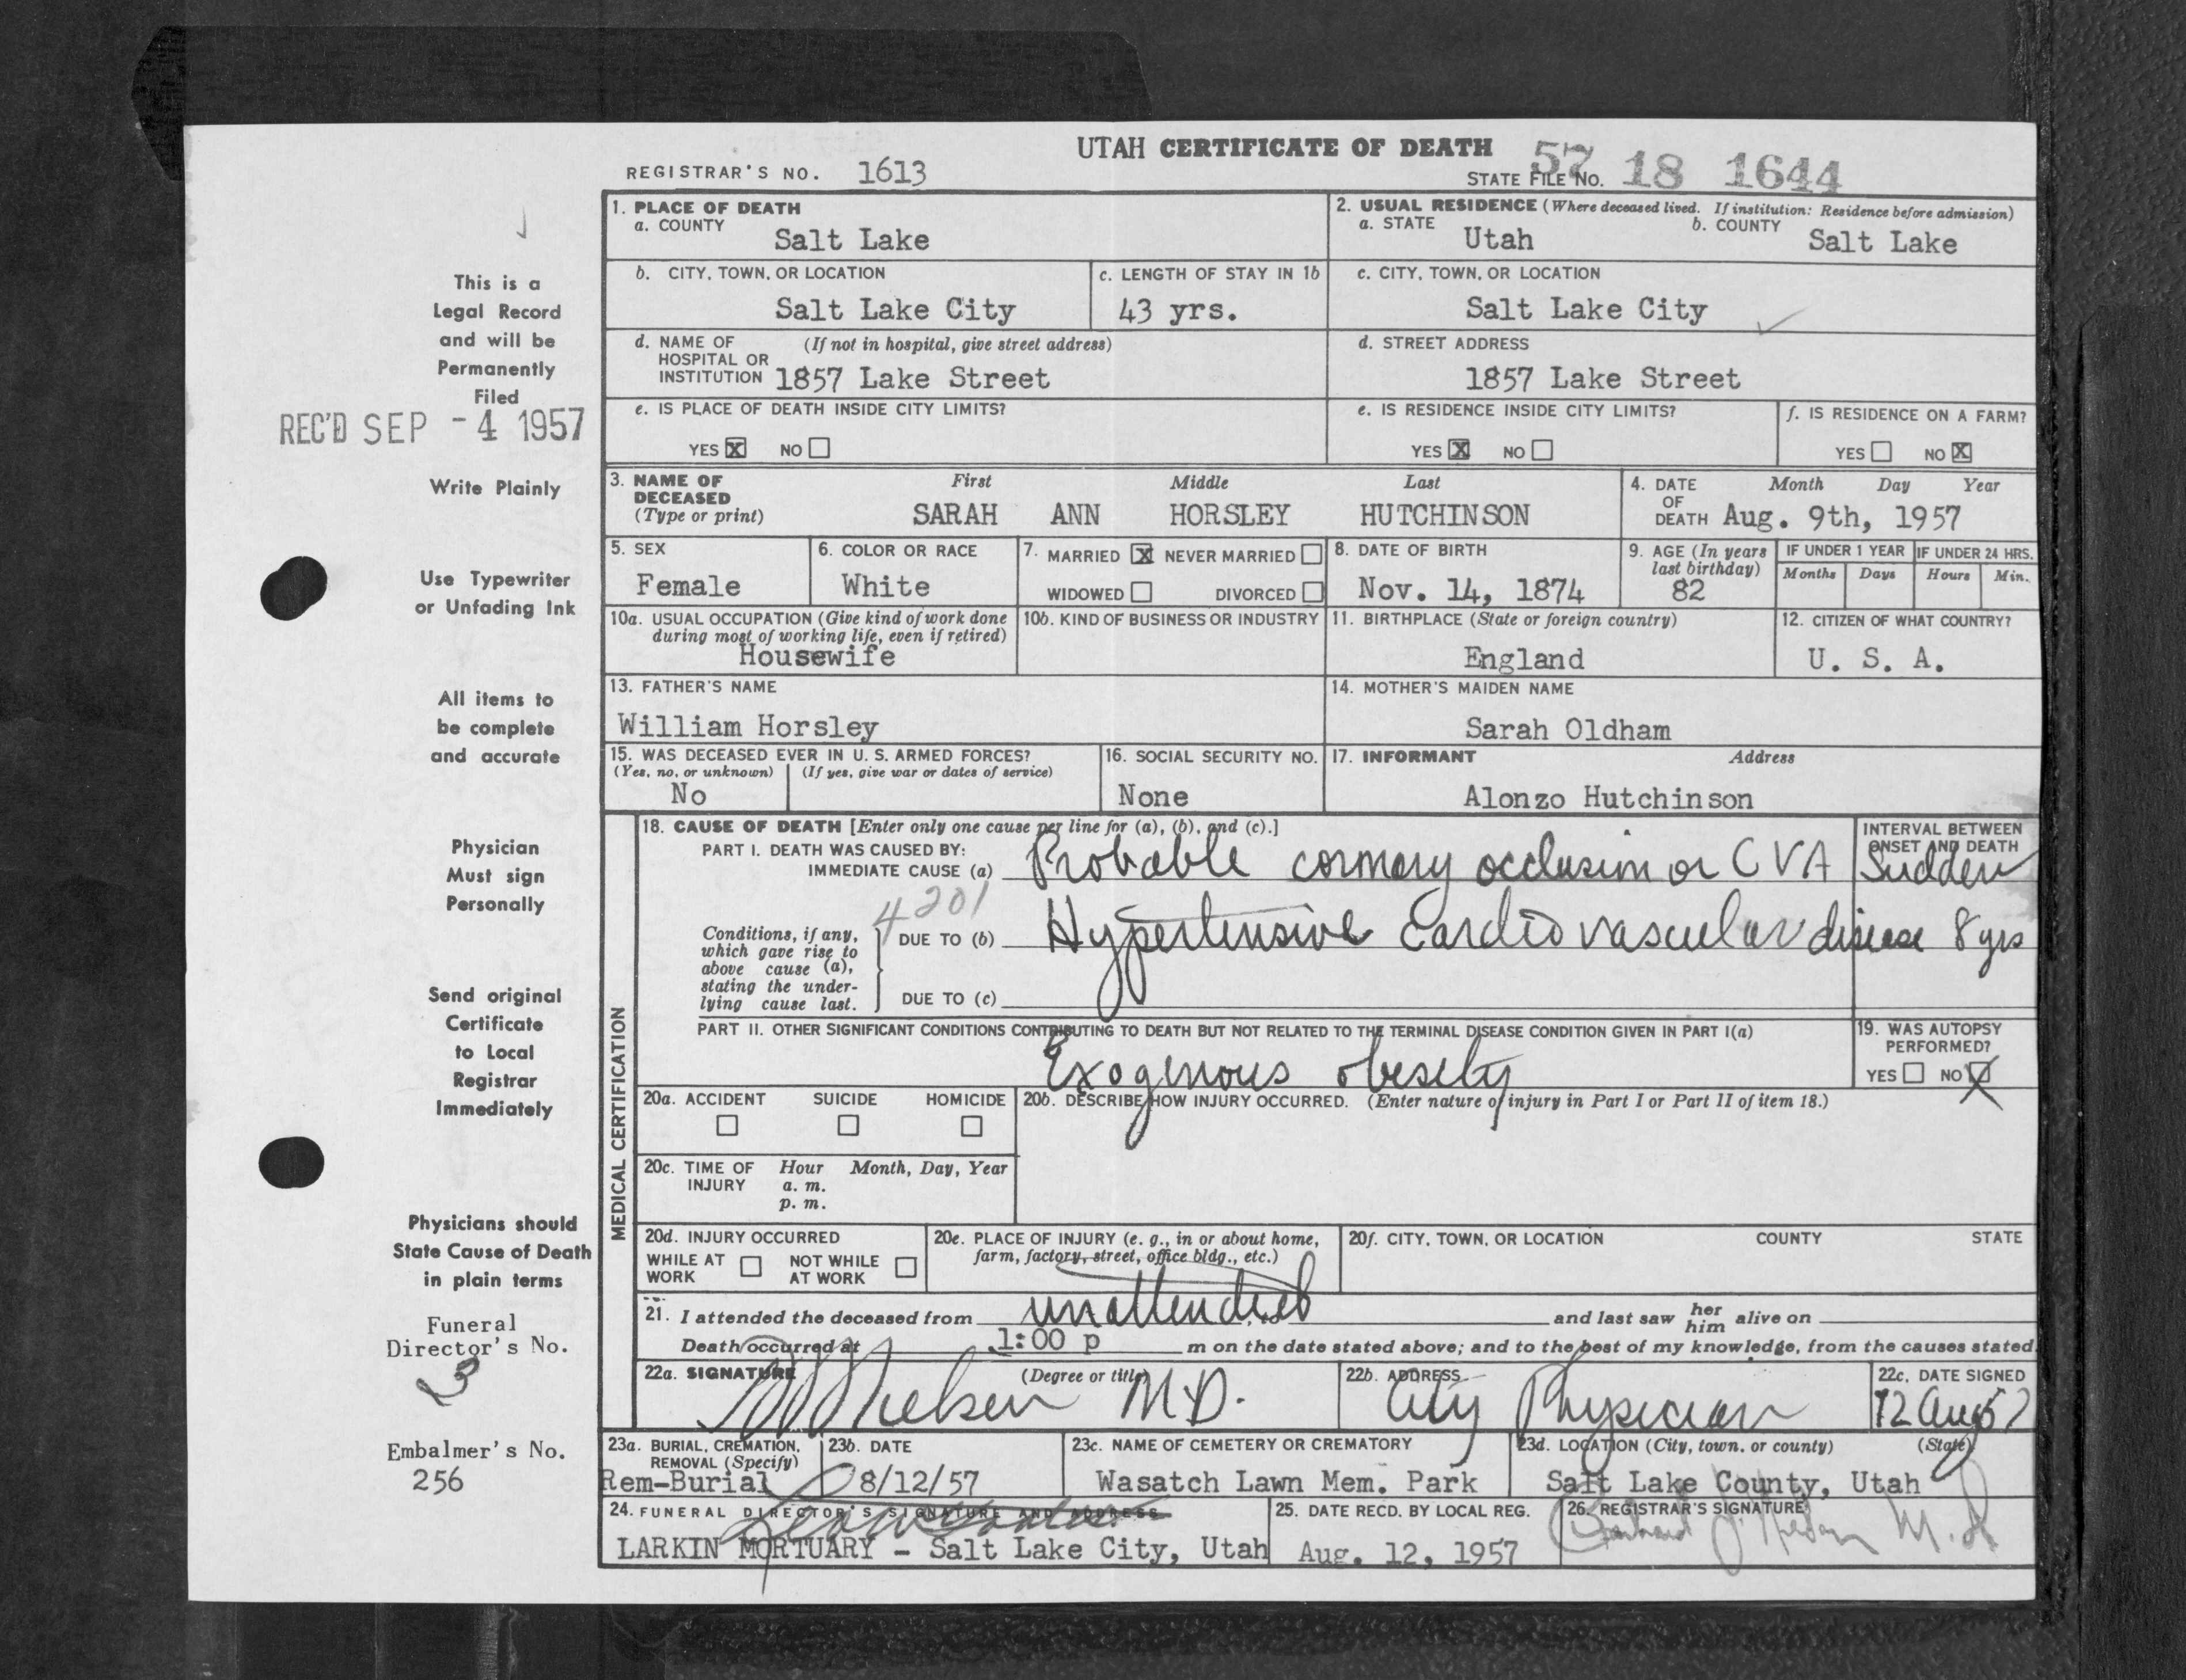 UTAH CERTIFICATE OF DEATH
REGISTRAR'S NO. 1613
STATE FILE NO. 57 18 1644
1. PLACE OF DEATH
a. COUNTY
Salt Lake
2. USUAL RESIDENCE (Where deceased lived. If institution: Residence before admission)
a. STATE Utah
b. COUNTY Salt Lake
b. CITY, TOWN, OR LOCATION
Salt Lake City
c. LENGTH OF STAY IN 1b
43 yrs.
c. CITY, TOWN, OR LOCATION
Salt Lake City
d. NAME OF HOSPITAL OR INSTITUTION (If not in hospital, give street address)
1857 Lake Street
d. STREET ADDRESS
1857 Lake Street
e. IS PLACE OF DEATH INSIDE CITY LIMITS?
YES X NO
e. IS RESIDENCE INSIDE CITY LIMITS?
YES X NO
f. IS RESIDENCE ON A FARM?
YES NO X
3. NAME OF DECEASED (Type or print)
First Middle Last
SARAH ANN HORSLEY HUTCHINSON
4. DATE OF DEATH
Month Day Year
Aug. 9th, 1957
5. SEX
Female
6. COLOR OR RACE
White
7. MARRIED X NEVER MARRIED
WIDOWED DIVORCED
8. DATE OF BIRTH
Nov. 14, 1874
9. AGE (In years last birthday)
82
IF UNDER 1 YEAR
Months Days
IF UNDER 24 HRS.
Hours Min.
10a. USUAL OCCUPATION (Give kind of work done during most of working life, even if retired)
Housewife
10b. KIND OF BUSINESS OR INDUSTRY
11. BIRTHPLACE (State or foreign country)
England
12. CITIZEN OF WHAT COUNTRY?
U. S. A.
13. FATHER'S NAME
William Horsley
14. MOTHER'S MAIDEN NAME
Sarah Oldham
15. WAS DECEASED EVER IN U. S. ARMED FORCES?
(Yes, no, or unknown) (If yes, give war or dates of service)
No
16. SOCIAL SECURITY NO.
None
17. INFORMANT Address
Alonzo Hutchinson
MEDICAL CERTIFICATION
18. CAUSE OF DEATH [Enter only one cause per line for (a), (b), and (c).]
PART I. DEATH WAS CAUSED BY:
IMMEDIATE CAUSE (a) Probable coronary occlusion or CVA
INTERVAL BETWEEN ONSET AND DEATH
Sudden
4201
Conditions, if any, which gave rise to above cause (a), stating the underlying cause last.
DUE TO (b) Hypertensive cardiovascular disease 8 yrs
DUE TO (c)
PART II. OTHER SIGNIFICANT CONDITIONS CONTRIBUTING TO DEATH BUT NOT RELATED TO THE TERMINAL DISEASE CONDITION GIVEN IN PART I(a)
Exogenous obesity
19. WAS AUTOPSY PERFORMED?
YES NO X
20a. ACCIDENT SUICIDE HOMICIDE
20b. DESCRIBE HOW INJURY OCCURRED. (Enter nature of injury in Part I or Part II of item 18.)
20c. TIME OF INJURY Hour Month, Day, Year
a. m.
p. m.
20d. INJURY OCCURRED
WHILE AT WORK NOT WHILE AT WORK
20e. PLACE OF INJURY (e. g., in or about home, farm, factory, street, office bldg., etc.)
20f. CITY, TOWN, OR LOCATION COUNTY STATE
21. I attended the deceased from unattended and last saw her him alive on
Death occurred at 1:00 p m on the date stated above; and to the best of my knowledge, from the causes stated.
22a. SIGNATURE (Degree or title)
Nielsen M.D.
22b. ADDRESS
City Physician
22c. DATE SIGNED
12 Aug 57
23a. BURIAL, CREMATION, REMOVAL (Specify)
Rem-Burial
23b. DATE
8/12/57
23c. NAME OF CEMETERY OR CREMATORY
Wasatch Lawn Mem. Park
23d. LOCATION (City, town, or county) (State)
Salt Lake County, Utah
24. FUNERAL DIRECTOR'S SIGNATURE AND ADDRESS
LARKIN MORTUARY - Salt Lake City, Utah
25. DATE RECD. BY LOCAL REG.
Aug. 12, 1957
26. REGISTRAR'S SIGNATURE
M.D.
This is a
Legal Record
and will be
Permanently
Filed
REC'D SEP -4 1957
Write Plainly
Use Typewriter
or Unfading Ink
All items to
be complete
and accurate
Physician
Must sign
Personally
Send original
Certificate
to Local
Registrar
Immediately
Physicians should
State Cause of Death
in plain terms
Funeral
Director's No.
3
Embalmer's No.
256